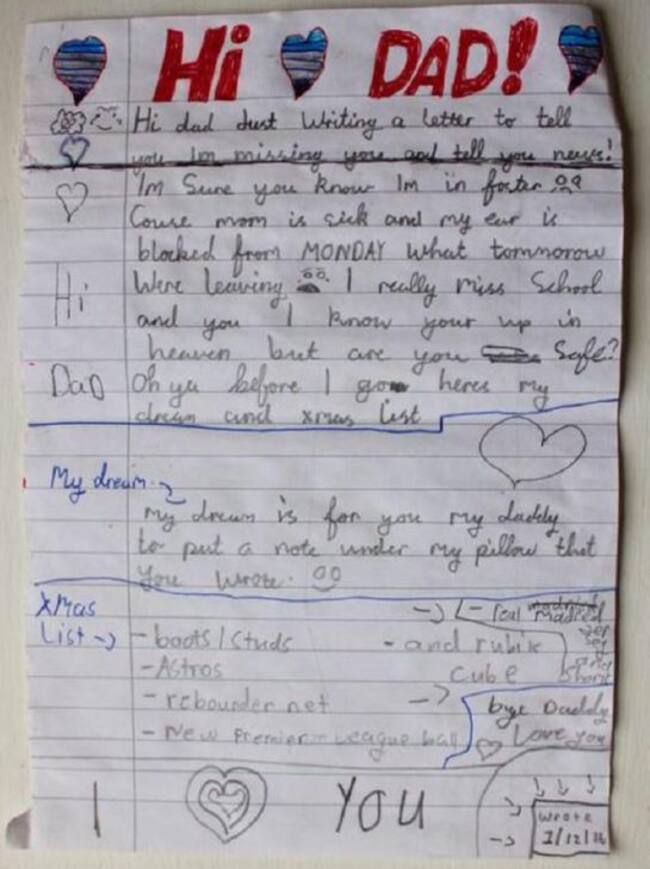 Hi DAD!
Hi dad Just Writing a letter to tell
you Im missing you and tell you news!
Im Sure you know Im in foster
Couse mom is sick and my ear is
blocked from MONDAY What tomnorow
Were leaving I really miss School
and you I know your up in
heaven but are you Safe?
Oh ya before I go heres my
dream and xmas list
Hi
Dad
My dream
my dream is for you my daddy
to put a note under my pillow that
you wrote.
XMas
List
- boots/studs
- Astros
- rebounder net
- New Premier League ball
- real madrid
- and rubix
cube
bye Daddy
Love you
I YOU
wrote